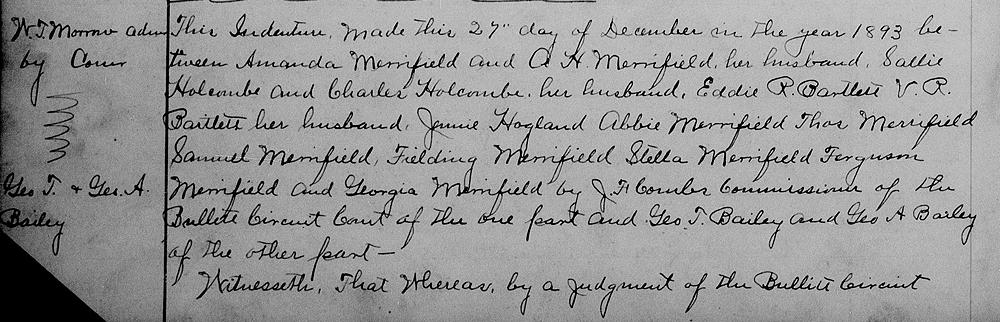 W. T. Morrow adm
by Comr
Geo T. & Geo. A.
Bailey
This Indenture, Made this 27" day of December in the year 1893 be-
tween Amanda Merrifield and A H. Merrifield, her husband, Sallie
Holcombe and Charles Holcombe, her husband, Eddie R. Bartlett V. R.
Bartlett her husband, Jennie Hogland Abbie Merrifield Thos Merrifield
Samuel Merrifield, Fielding Merrifield Stella Merrifield Ferguson
Merrifield and Georgia Merrifield by J. F Combs Commissioner of the
Bullitt Circuit Court of the one part and Geo. T. Bailey and Geo A Bailey
of the other part—
Witnesseth, That Whereas, by a judgment of the Bullitt Circuit